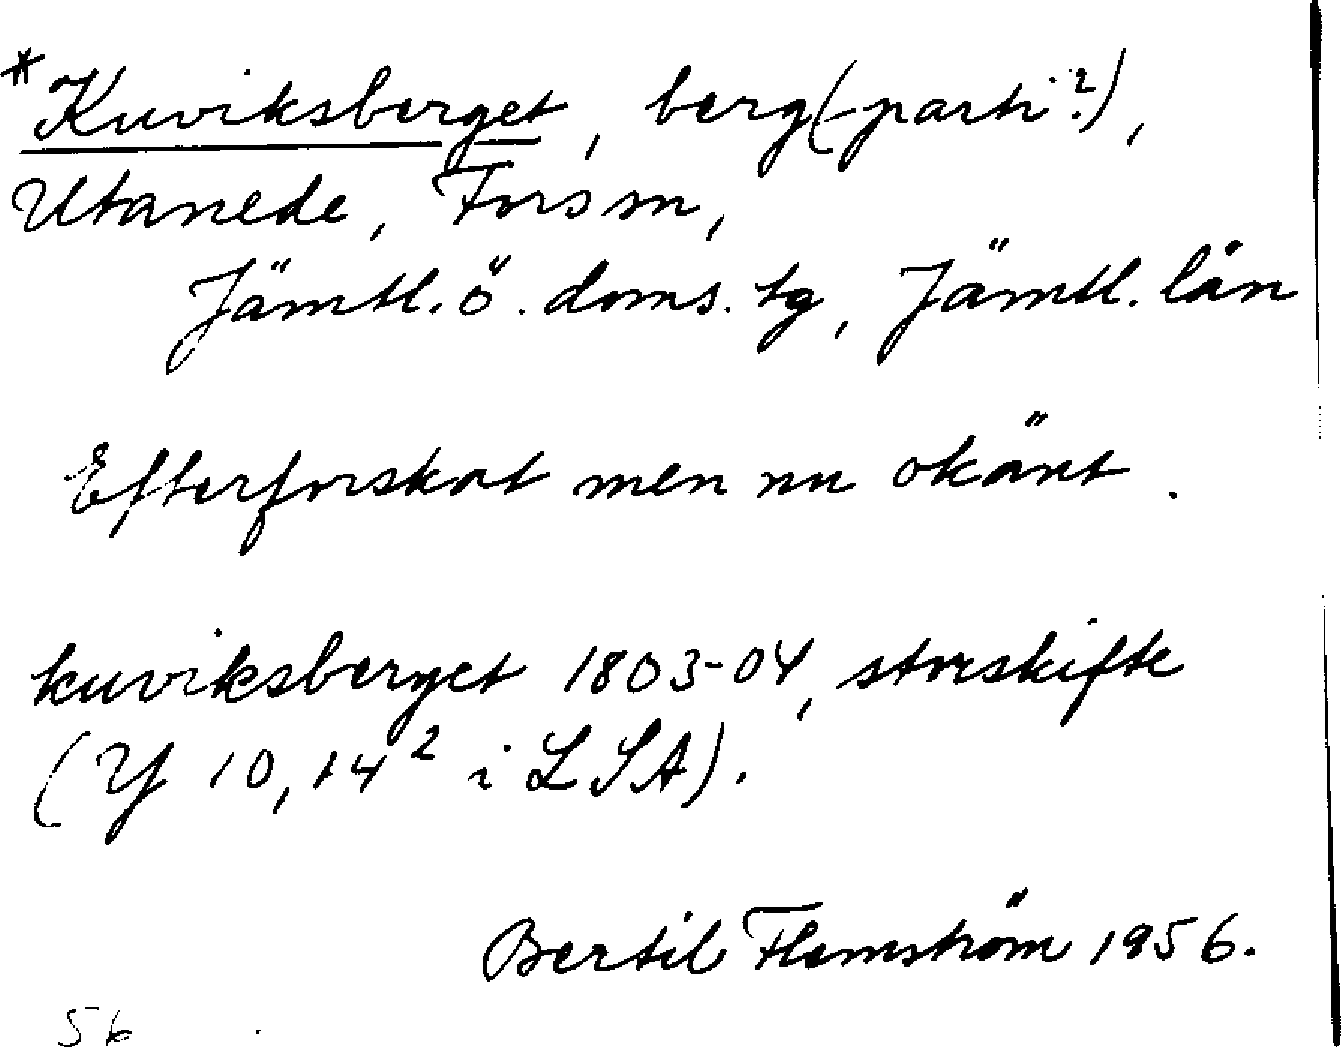 *Kuviksberget, berg(-parti?),
Utanede, Fors sn,
Jämtl. ö. doms. tg, Jämtl. län
Efterforskat men nu okänt.
kuviksberget 1803-04, storskifte
(Y 10, 14² i LSA).
Bertil Flemström 1956.
56